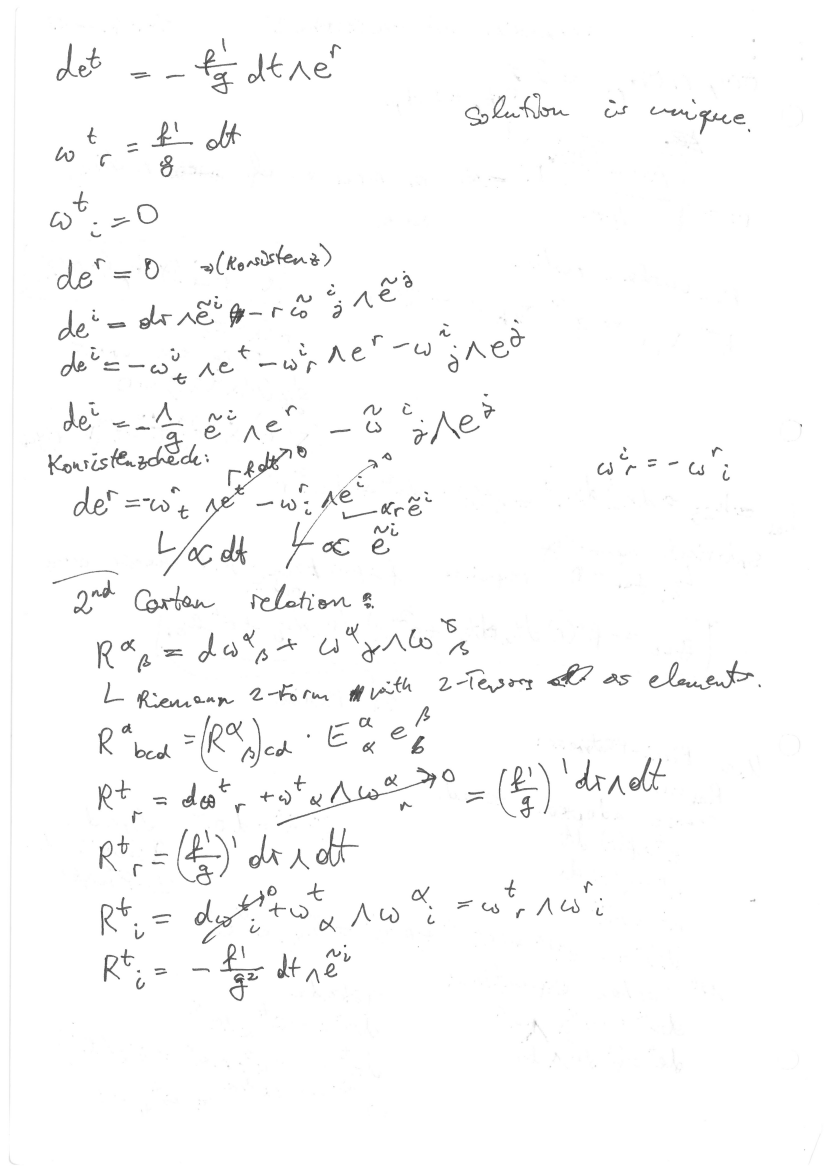 de^t = - f'/g dt ∧ e^r
solution is unique.
ω^t_r = f'/g dt
ω^t_i = 0
de^r = 0 ⇒ (Konsistenz)
de^i = dr ∧ ẽ^i - r ω̃^i_j ∧ ẽ^j
de^i = - ω^i_t ∧ e^t - ω^i_r ∧ e^r - ω^i_j ∧ e^j
de^i = - 1/g ẽ^i ∧ e^r - ω̃^i_j ∧ e^j
Konsistenzcheck:
ω^i_r = - ω^r_i
de^r = - ω^r_t ∧ e^t - ω^r_i ∧ e^i
∝ r ẽ^i
∝ dt ∝ ẽ^i
2nd Cartan relation:
R^α_β = dω^α_β + ω^α_γ ∧ ω^γ_β
Riemann 2-Form with 2-Tensors as elements.
R^a_bcd = (R^α_β)_cd · E^a_α e^β_b
R^t_r = dω^t_r + ω^t_α ∧ ω^α_r → 0 = (f'/g)' dr ∧ dt
R^t_r = (f'/g)' dr ∧ dt
R^t_i = dω^t_i → 0 + ω^t_α ∧ ω^α_i = ω^t_r ∧ ω^r_i
R^t_i = - f'/g² dt ∧ ẽ^i